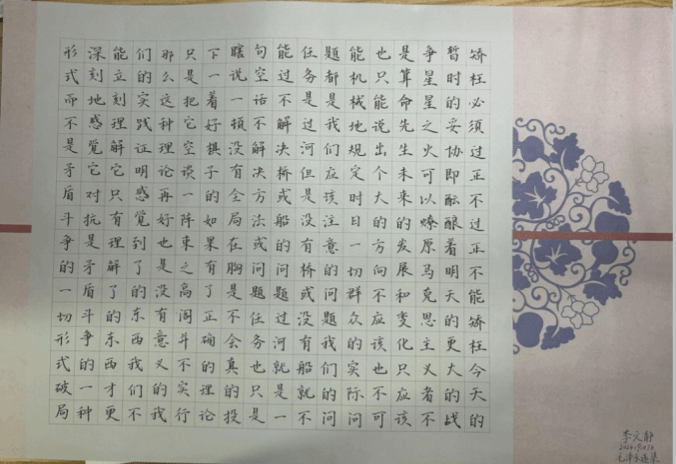 矫枉必须过正不过正不能矫枉今天的
暂时的妥协即酝酿着明天的更大的战
争星星之火可以燎原马克思主义者不
是算命先生未来的发展和变化只应该
也只能说出个大的方向不应该也不可
能机械地规定时日一切群众的实际问
题都是我们应该注意的问题我们的问
任务是过河但是没有桥或没有船就不
能过不解决桥或船的问题过河就是一
句空话不解决方法或问题任务也只是
瞎说一顿没有全局在胸是不会真的投
下一着好棋子的如果有了正确的理论
只是把它空谈一阵束之高阁斗不实行
那么这种理论再好也是没有意义的我
们的实践证明感觉到了的东西我们不
能立刻理解它只有理解了的东西才更
深刻地感觉它对抗是矛盾斗争的一种
形式而不是矛盾斗争的一切形式破局
李文静
毛泽东选集